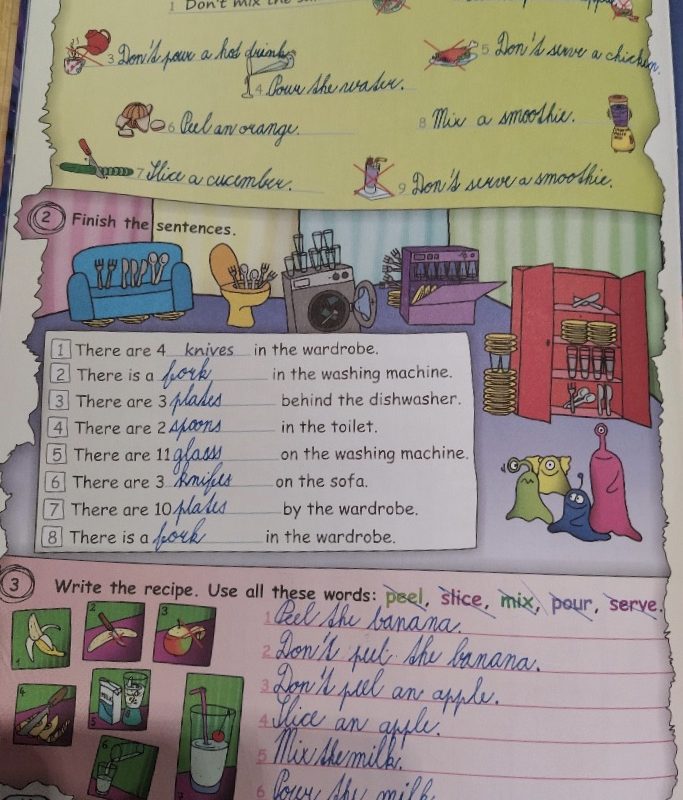 1 Don't mix the
3 Don't pour a hot drink.
4 Pour the water.
5 Don't serve a chicken.
6 Peel an orange.
8 Mix a smoothie.
7 Slice a cucember.
9 Don't serve a smoothie.
2 Finish the sentences.
1 There are 4 knives in the wardrobe.
2 There is a fork in the washing machine.
3 There are 3 plates behind the dishwasher.
4 There are 2 spoons in the toilet.
5 There are 11 glass on the washing machine.
6 There are 3 knifes on the sofa.
7 There are 10 plates by the wardrobe.
8 There is a fork in the wardrobe.
3 Write the recipe. Use all these words: peel, slice, mix, pour, serve.
1 Peel the banana.
2 Don't peel the banana.
3 Don't peel an apple.
4 Slice an apple.
5 Mix the milk.
6 Pour the milk